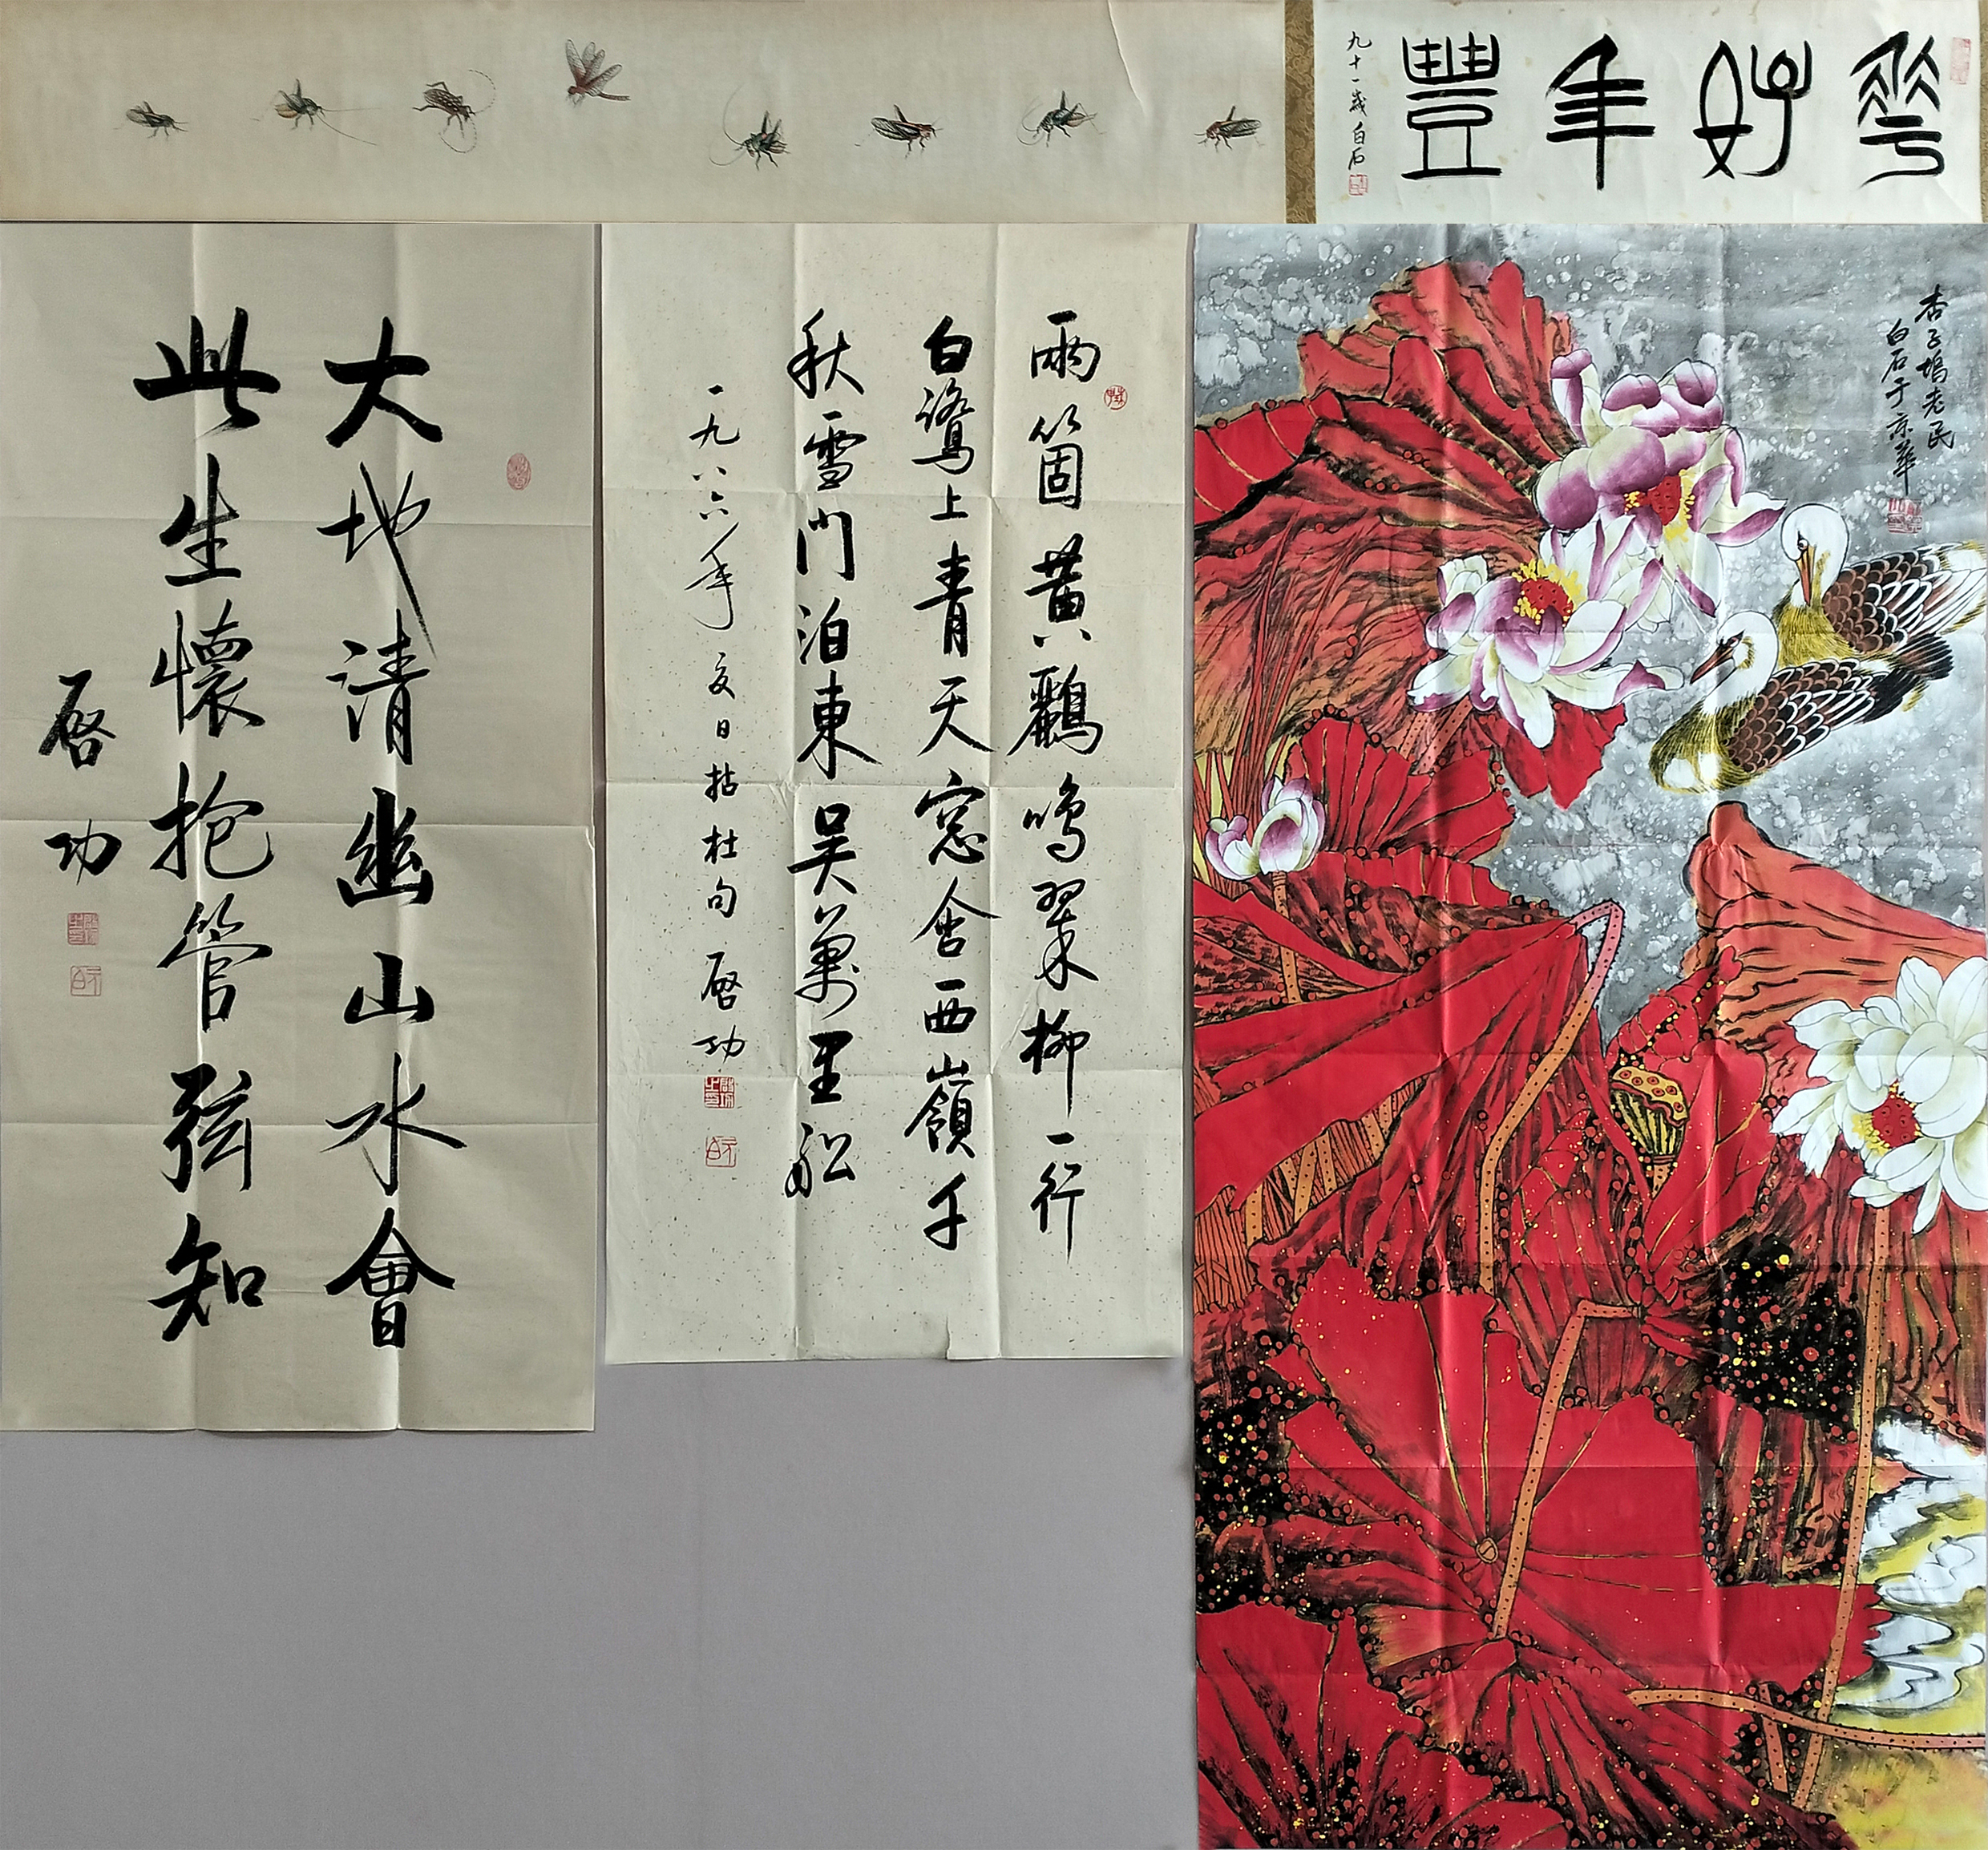 華好年豐
九十一歲白石
杏子塢老民
白石于京華
兩箇黃鸝鳴翠柳一行
白鷺上青天窓含西嶺千
秋雪門泊東吳萬里舩
一九八六年夏日拈杜句 啓功
大地清幽山水會
此生懷抱管弦知
啓功